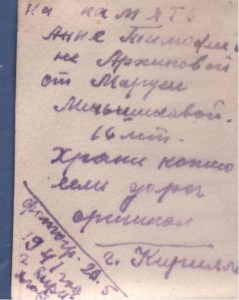 на память
Анне Тимофее
не Архиповой
от Маруси
Меньшиковой.
16 лет.
Храни копию
если дорог
оригинал
г. Кирилл
фотогр. 20. 5
1941 год
г.